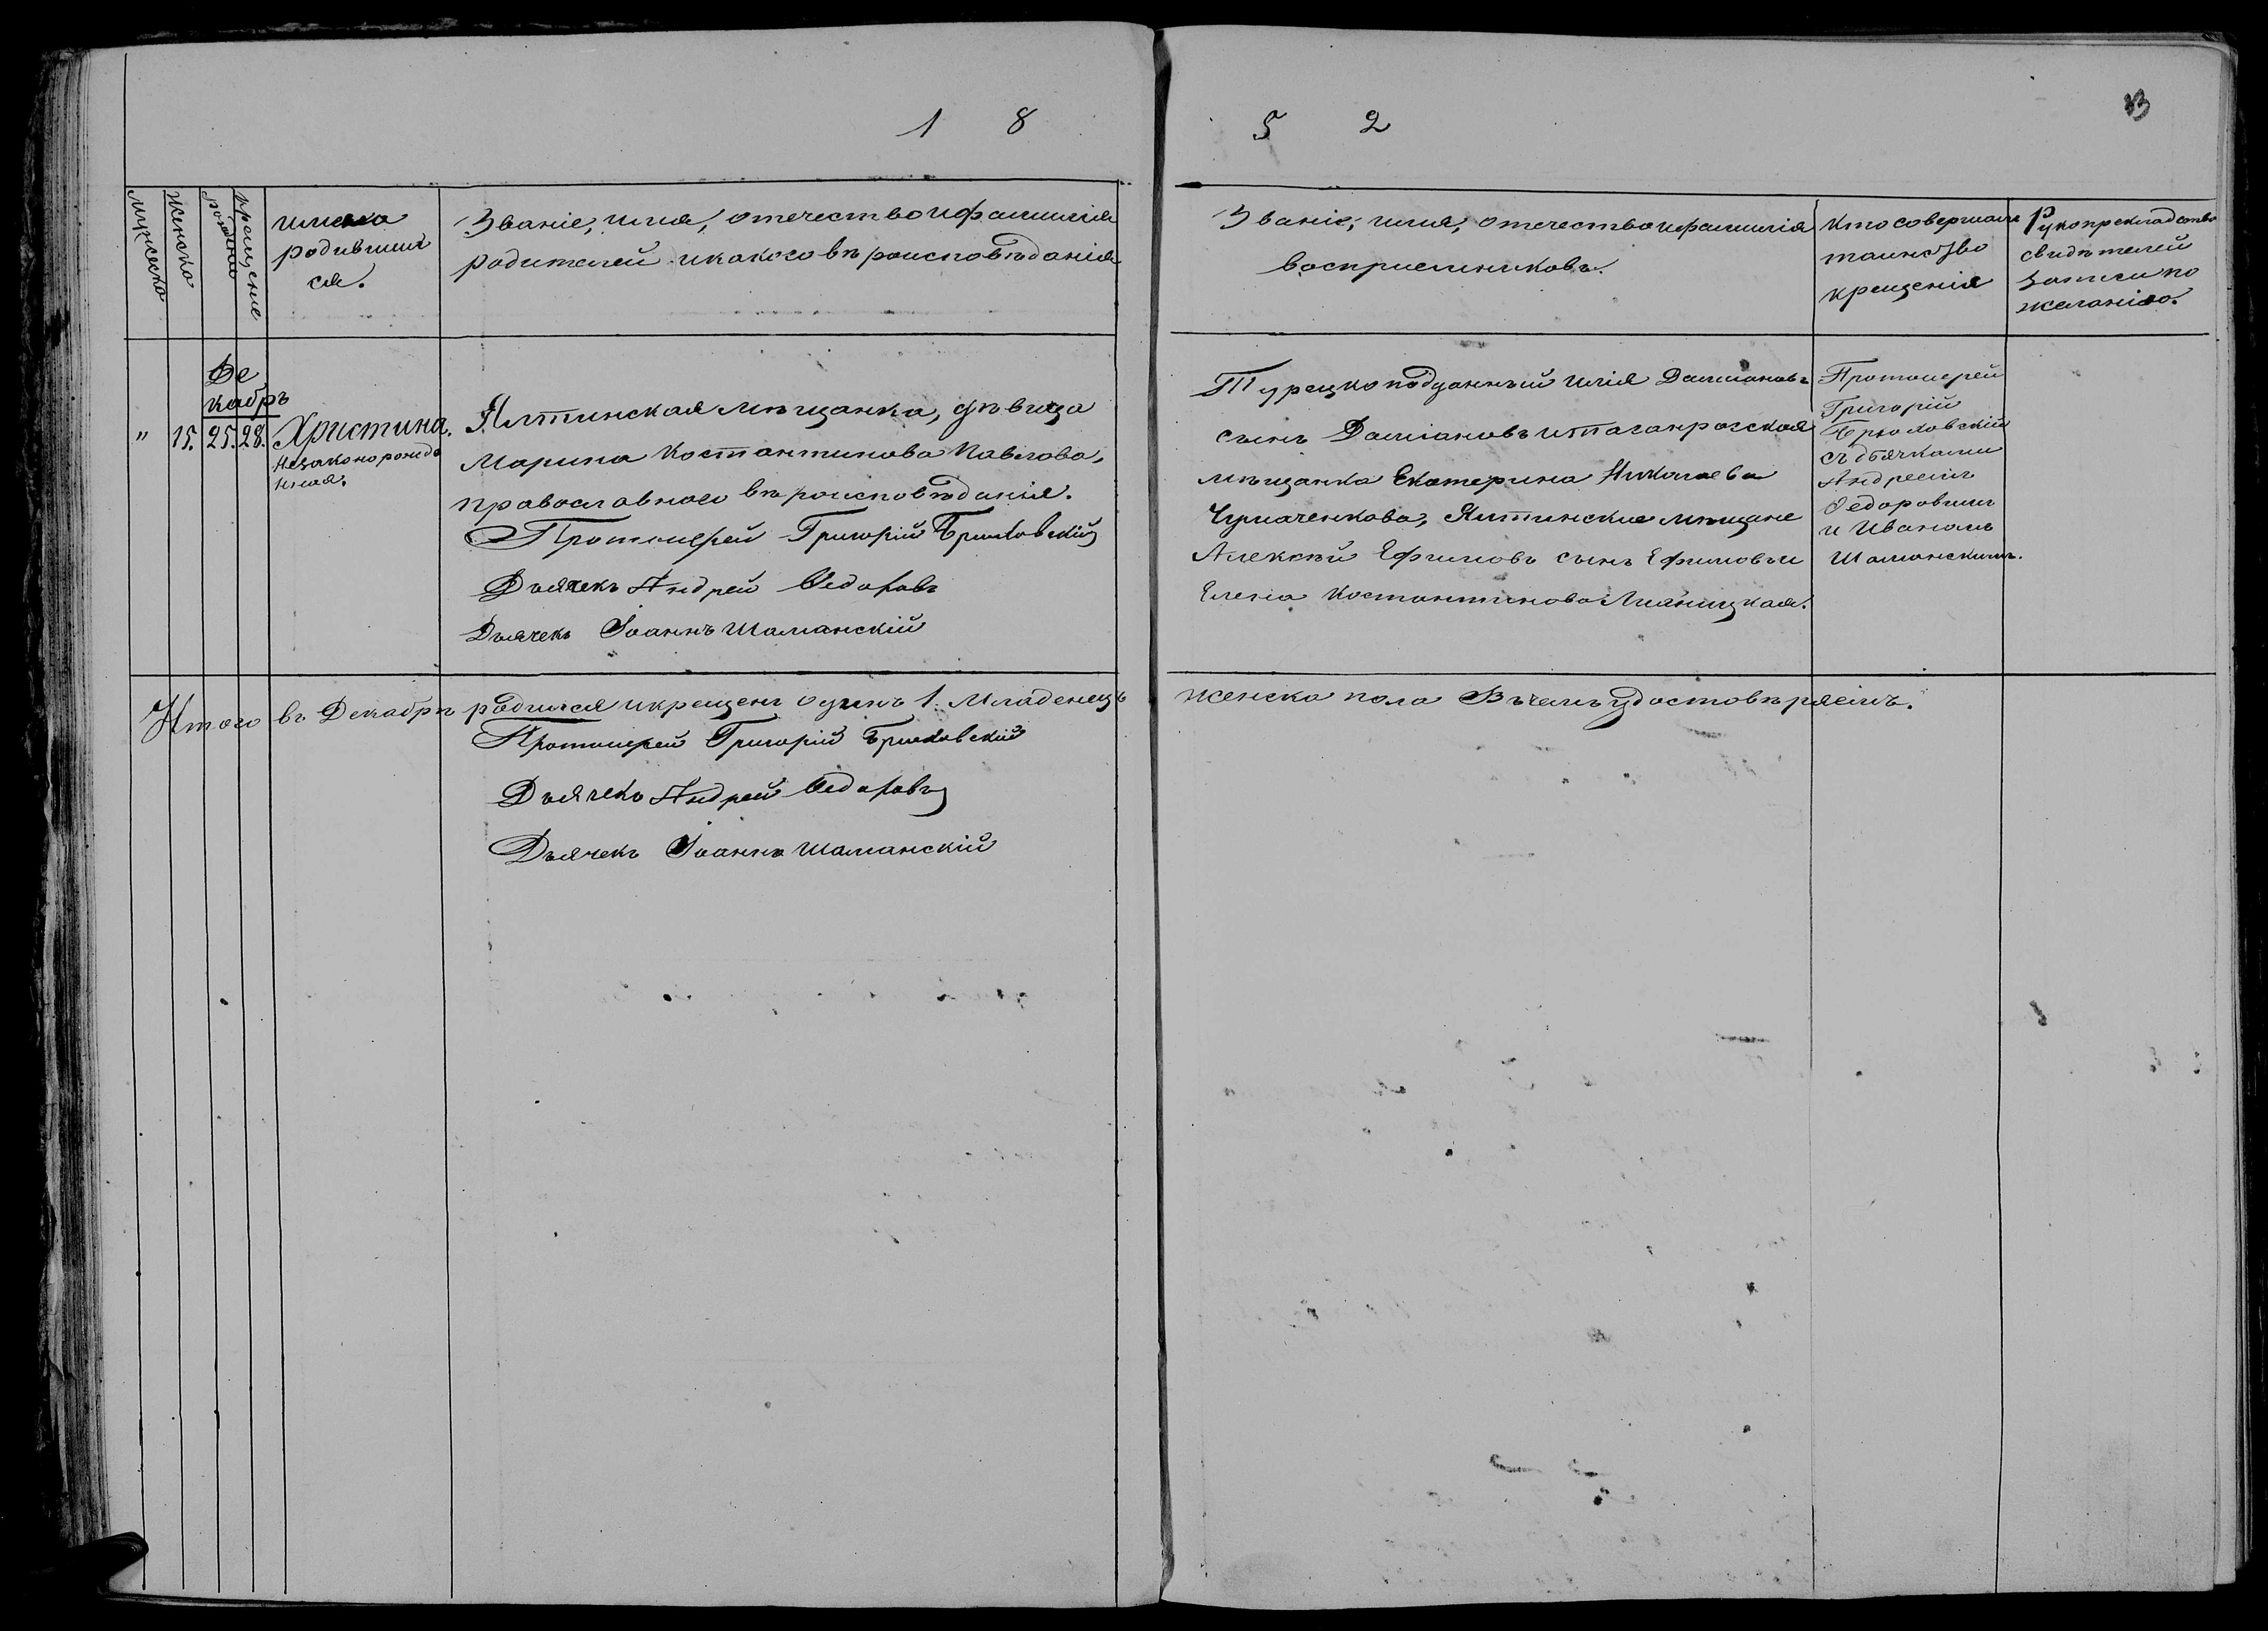 1 8 5 2
мужеска
женска
рожденіе
крещеніе
имена
родивших
ся.
Званіе, имя, отечество и фамилія
родителей и какого вѣроисповѣданія
Званіе, имя, отечество и фамилія
восприемниковъ.
кто совершалъ
таинство
крещенія
Рукоприкладство
свидѣтелей
записи по
желанію.
Де
кабрь
" 15. 25. 28. Христина.
Незаконорожде
нная.
Ялтинская мѣщанка, дѣвица
Марина Костантинова Павлова,
православного вѣроисповѣданія.
Протоиерей Григорій Брюховскій
Дьячекъ Андрей Ѳедоровъ
Дьячекъ Іоаннъ Шаманскій
Турецкоподданный илія Даміановъ
сынъ Даміановъ и таганрогская
мѣщанка Екатерина Николаева
Чумаченкова, Ялтинские мѣщане
Алексѣй Ефимовъ сынъ Ефимовъ и
Елена Костантинова
Протоиерей
Григорій
Брюховскій
съ дьячками
Андреемъ
Ѳедоровымъ
и Иваномъ
Шаманскимъ.
Итого въ Декабрѣ родился и крещенъ одинъ 1. Младенецъ женска пола Въ чемъ удостовѣряемъ.
Протоиерей Григорій Брюховскій
Дьячекъ Андрей Ѳедоровъ
Дьячекъ Іоаннъ Шаманскій